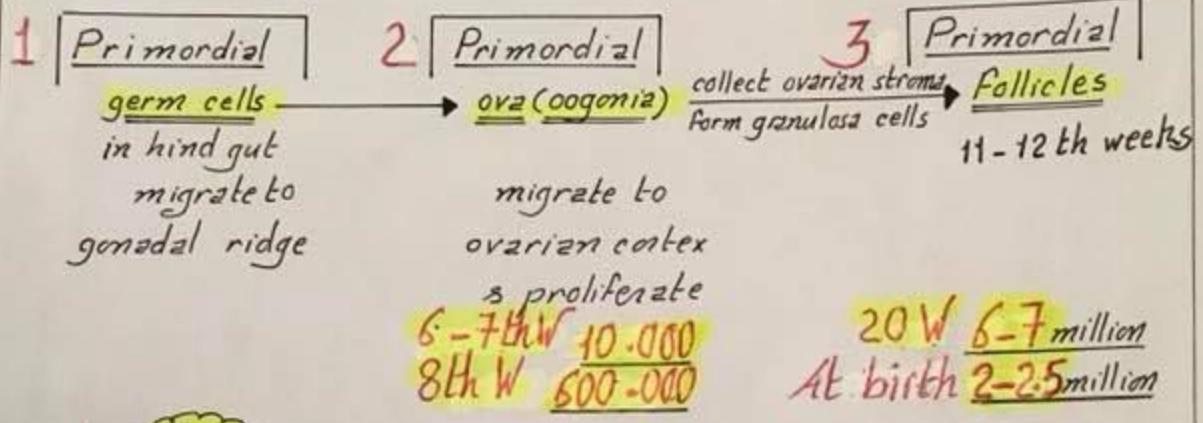 1 Primordial
germ cells
in hind gut
migrate to
gonadal ridge
2 Primordial
ova (oogonia)
migrate to
ovarian cortex
& proliferate
6-7thW 10.000
8th W 600-000
collect ovarian stroma
form granulosa cells
3 Primordial
follicles
11-12 th weeks
20 W 6-7 million
At birth 2-2.5 million